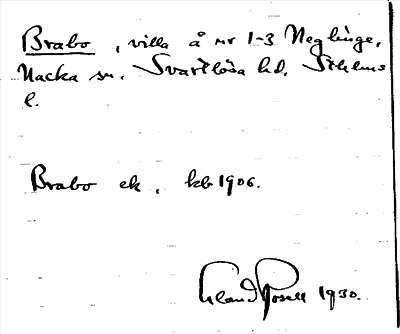 Brabo, villa å nr 1-3 Neglinge,
Nacka sn. Svartlösa hd. Sthlms
l.
Brabo ek, kb 1906.
1930.